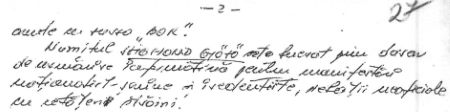 - 2 -
27
anute cu sursa "BOK".
Numitul STEFANO GYÖZÖ este lucrat prin dosar
de urmărire informativă pentru manifestări
naționalist-șovine și iredentiste, relații neoficiale
cu cetățeni străini.